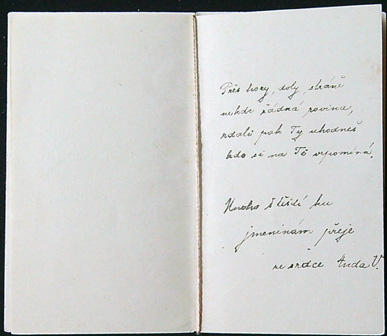 Přes hory, doly, stráně
nekde žádná rovina,
zdali pak Ty uhodneš
kdo si na Tě vzpomíná.
Mnoho štěstí ku
jmeninám přeje
ze srdce Anda V.